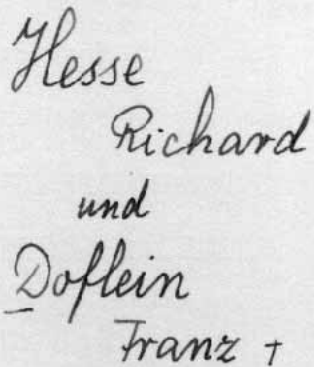 Hesse
Richard
und
Doflein
Franz †